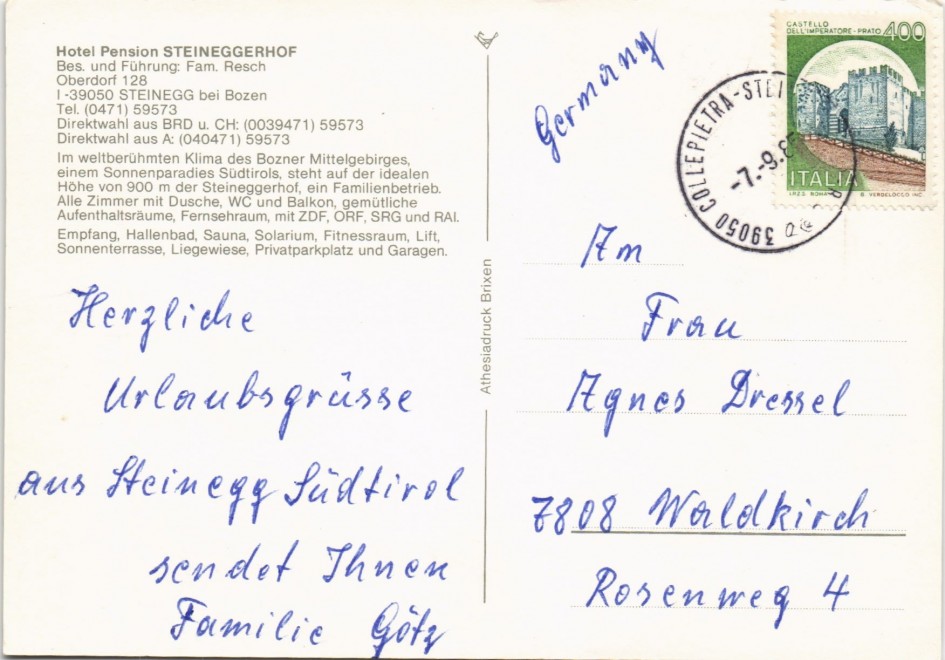 Hotel Pension STEINEGGERHOF
Bes. und Führung: Fam. Resch
Oberdorf 128
I -39050 STEINEGG bei Bozen
Tel. (0471) 59573
Direktwahl aus BRD u. CH: (0039471) 59573
Direktwahl aus A: (040471) 59573
Im weltberühmten Klima des Bozner Mittelgebirges,
einem Sonnenparadies Südtirols, steht auf der idealen
Höhe von 900 m der Steineggerhof, ein Familienbetrieb.
Alle Zimmer mit Dusche, WC und Balkon, gemütliche
Aufenthaltsräume, Fernsehraum, mit ZDF, ORF, SRG und RAI.
Empfang, Hallenbad, Sauna, Solarium, Fitnessraum, Lift,
Sonnenterrasse, Liegewiese, Privatparkplatz und Garagen.
Herzliche
Urlaubsgrüsse
aus Steinegg Südtirol
sendet Ihnen
Familie Götz
Athesiadruck Brixen
Germany
CASTELLO
DELL'IMPERATORE-PRATO 400
ITALIA
I.P.Z.S. ROMA
39050 COLLEPIETRA-STEI
-7.-9.8
An
Frau
Agnes Dressel
7808 Waldkirch
Rosenweg 4